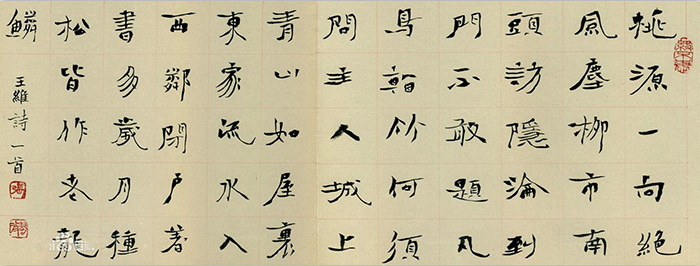 桃源一向絕
風塵柳市南
頭訪隱淪到
門不敢題凡
鳥看竹何須
問主人城上
青山如屋裏
東家流水入
西鄰閉戶著
書多歲月種
松皆作老龍
鱗
王維詩一首